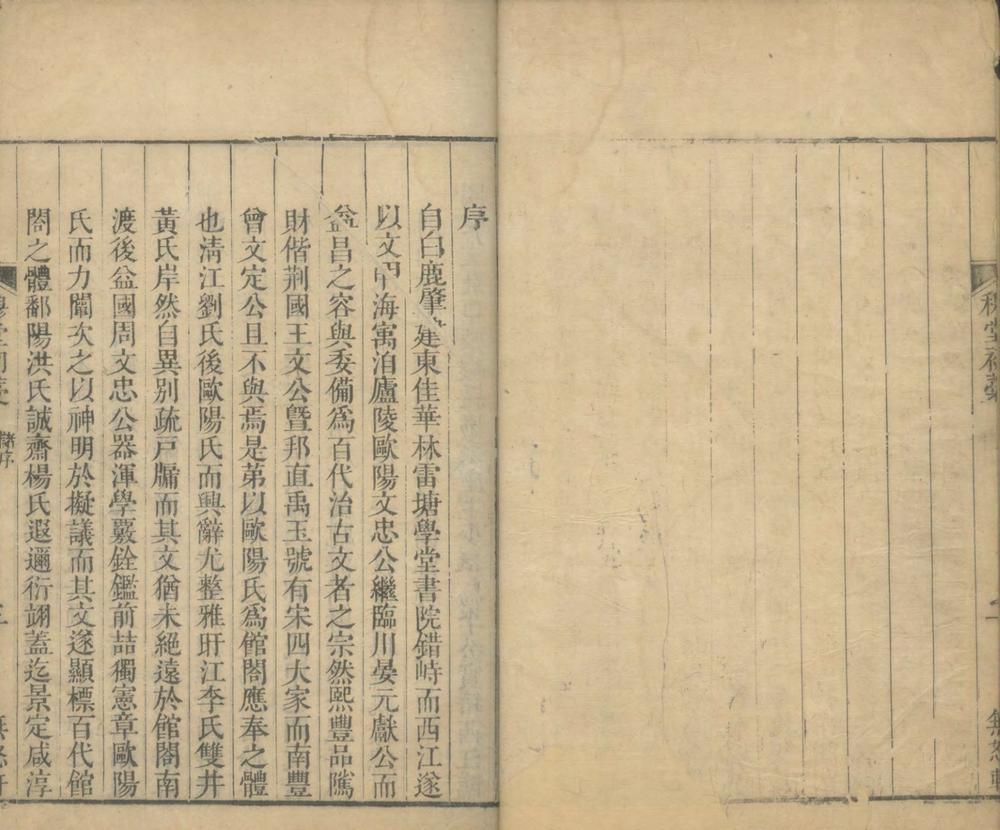 穆堂初稾
無怒軒
序
自白鹿肇建東佳華林雷塘學堂書院錯峙而西江遂
以文甲海寓洎廬陵歐陽文忠公繼臨川晏元獻公而
益昌之容與委備爲百代治古文者之宗然熙豐品隲
財偕荆國王文公曁邦直禹玉號有宋四大家而南豐
曾文定公且不與焉是第以歐陽氏爲館閣應奉之體
也淸江劉氏後歐陽氏而興辭尤整雅旴江李氏雙井
黃氏岸然自異別疏戸牖而其文猶未絕遠於館閣南
渡後益國周文忠公器渾學覈銓鑑前喆獨憲章歐陽
氏而力闡次之以神明於擬議而其文遂顯標百代館
閣之體鄱陽洪氏誠齋楊氏遐邇衍翊蓋迄景定咸淳
穆堂初稾 諸序
無怒軒